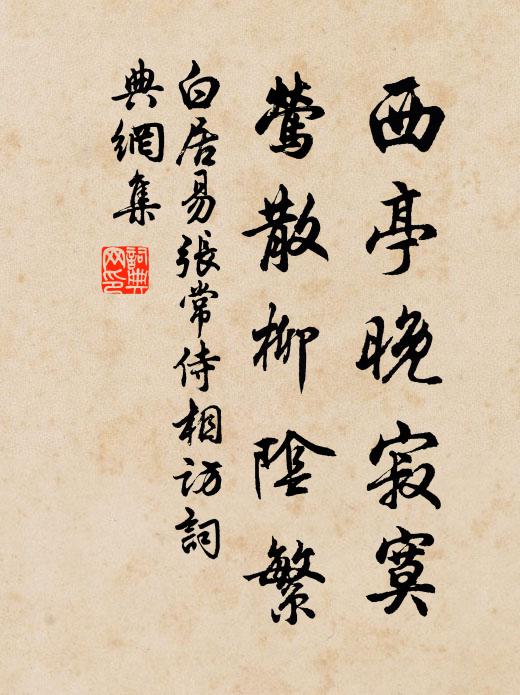 西亭晚寂寞
莺散柳陰繁
白居易張常侍相访詞
典網集
詞典
网印